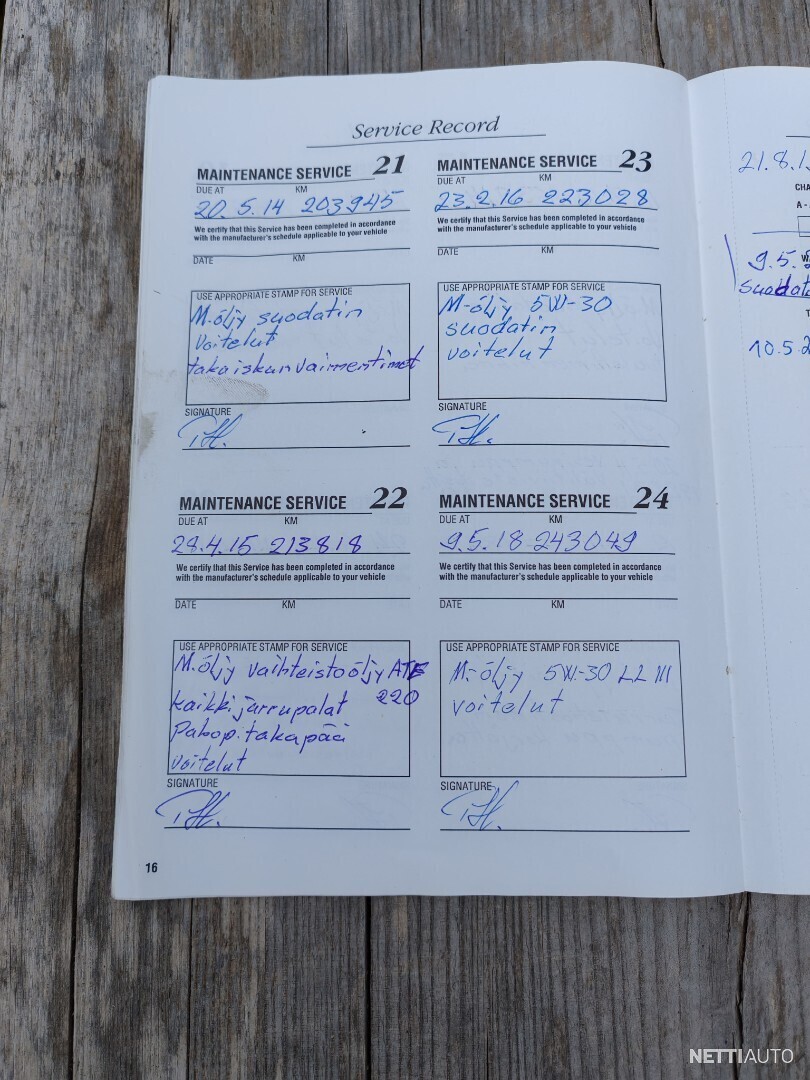 Service Record
MAINTENANCE SERVICE 21
DUE AT KM
20.5.14 203945
We certify that this Service has been completed in accordance
with the manufacturer's schedule applicable to your vehicle
DATE KM
USE APPROPRIATE STAMP FOR SERVICE
M-öljy suodatin
Voitelut
takaiskunvaimentimet
SIGNATURE
MAINTENANCE SERVICE 22
DUE AT KM
28.4.15 213818
We certify that this Service has been completed in accordance
with the manufacturer's schedule applicable to your vehicle
DATE KM
USE APPROPRIATE STAMP FOR SERVICE
M-öljy vaihteistoöljy ATF
kaikki jarrupalat 220
Pakop. takapää
voitelut
SIGNATURE
16
MAINTENANCE SERVICE 23
DUE AT KM
23.2.16 223028
We certify that this Service has been completed in accordance
with the manufacturer's schedule applicable to your vehicle
DATE KM
USE APPROPRIATE STAMP FOR SERVICE
M-öljy 5W-30
suodatin
voitelut
SIGNATURE
MAINTENANCE SERVICE 24
DUE AT KM
9.5.18 243049
We certify that this Service has been completed in accordance
with the manufacturer's schedule applicable to your vehicle
DATE KM
USE APPROPRIATE STAMP FOR SERVICE
M-öljy 5W-30 LL III
voitelut
SIGNATURE
21.8.1
CHA
A -
9.5.
suodat
10.5.2
NETTIAUTO